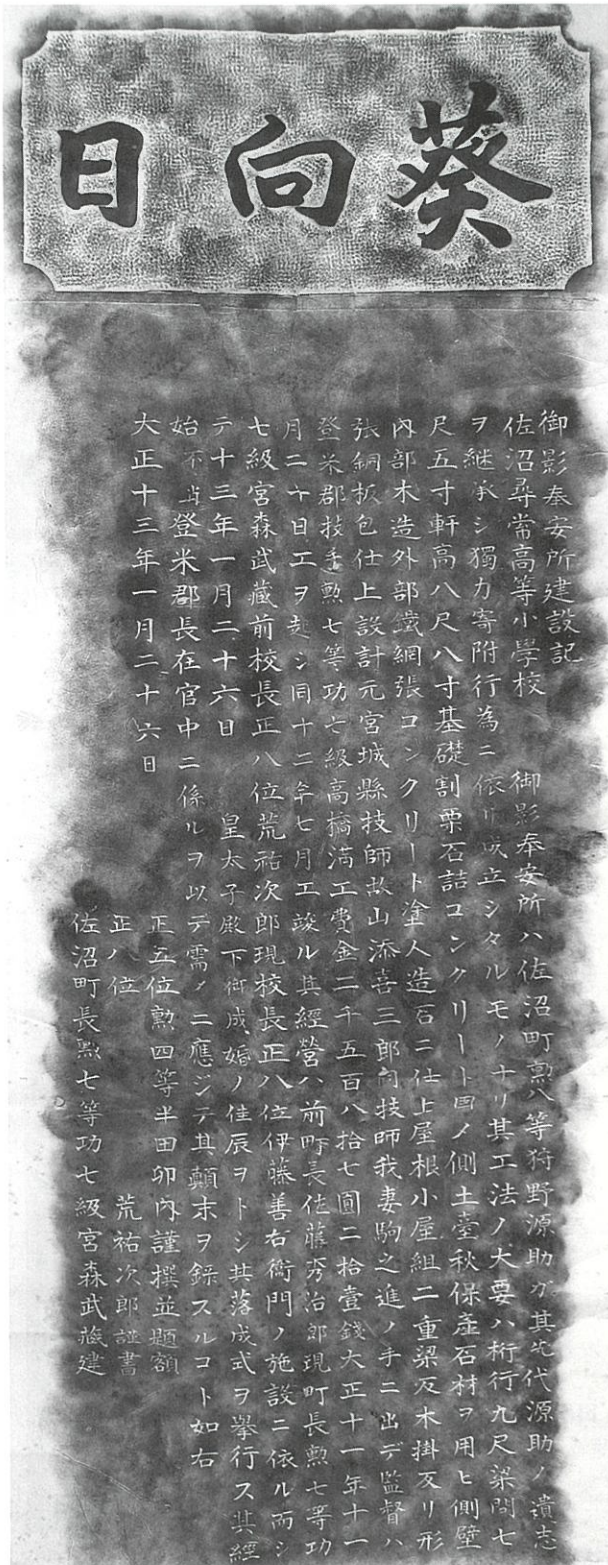 葵向日
御影奉安所建設記
佐沼尋常高等小學校　御影奉安所ハ佐沼町勲八等狩野源助ガ其先代源助ノ遺志
ヲ継承シ獨力寄附行為ニ依リ成立シタルモノナリ其工法ノ大要ハ桁行九尺梁間七
尺五寸軒高八尺八寸基礎割栗石詰コンクリート固メ側土臺秋保産石材ヲ用ヒ側壁
內部木造外部鐵網張コンクリート塗人造石ニ仕上屋根小屋組二重梁及木掛反リ形
張銅板包仕上設計元宮城縣技師故山添喜三郎同技師我妻駒之進ノ手ニ出デ監督ハ
登米郡技手勲七等功七級高橋満工費金二千五百八拾七圓二拾壹錢大正十一年十一
月二十日工ヲ起シ同十二年七月工竣ル其經營ハ前町長佐藤秀治郎現町長勲七等功
七級宮森武藏前校長正八位荒祐次郎現校長正八位伊藤善右衛門ノ施設ニ依ル而シ
テ十三年一月二十六日　皇太子殿下御成婚ノ佳辰ヲトシ其落成式ヲ擧行ス其經
始不肖登米郡長在官中ニ係ルヲ以テ需メニ應ジテ其顛末ヲ錄スルコト如右
大正十三年一月二十六日
正五位勲四等半田卯內謹撰並題額
正八位　荒祐次郎謹書
佐沼町長勲七等功七級宮森武藏建